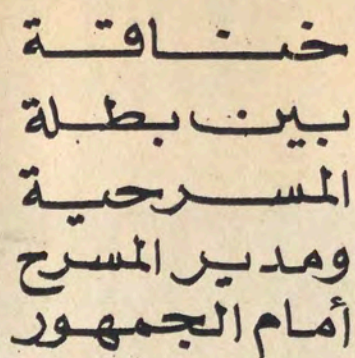 خناقة
بين بطلة
المسرحية
ومدير المسرح
أمام الجمهور